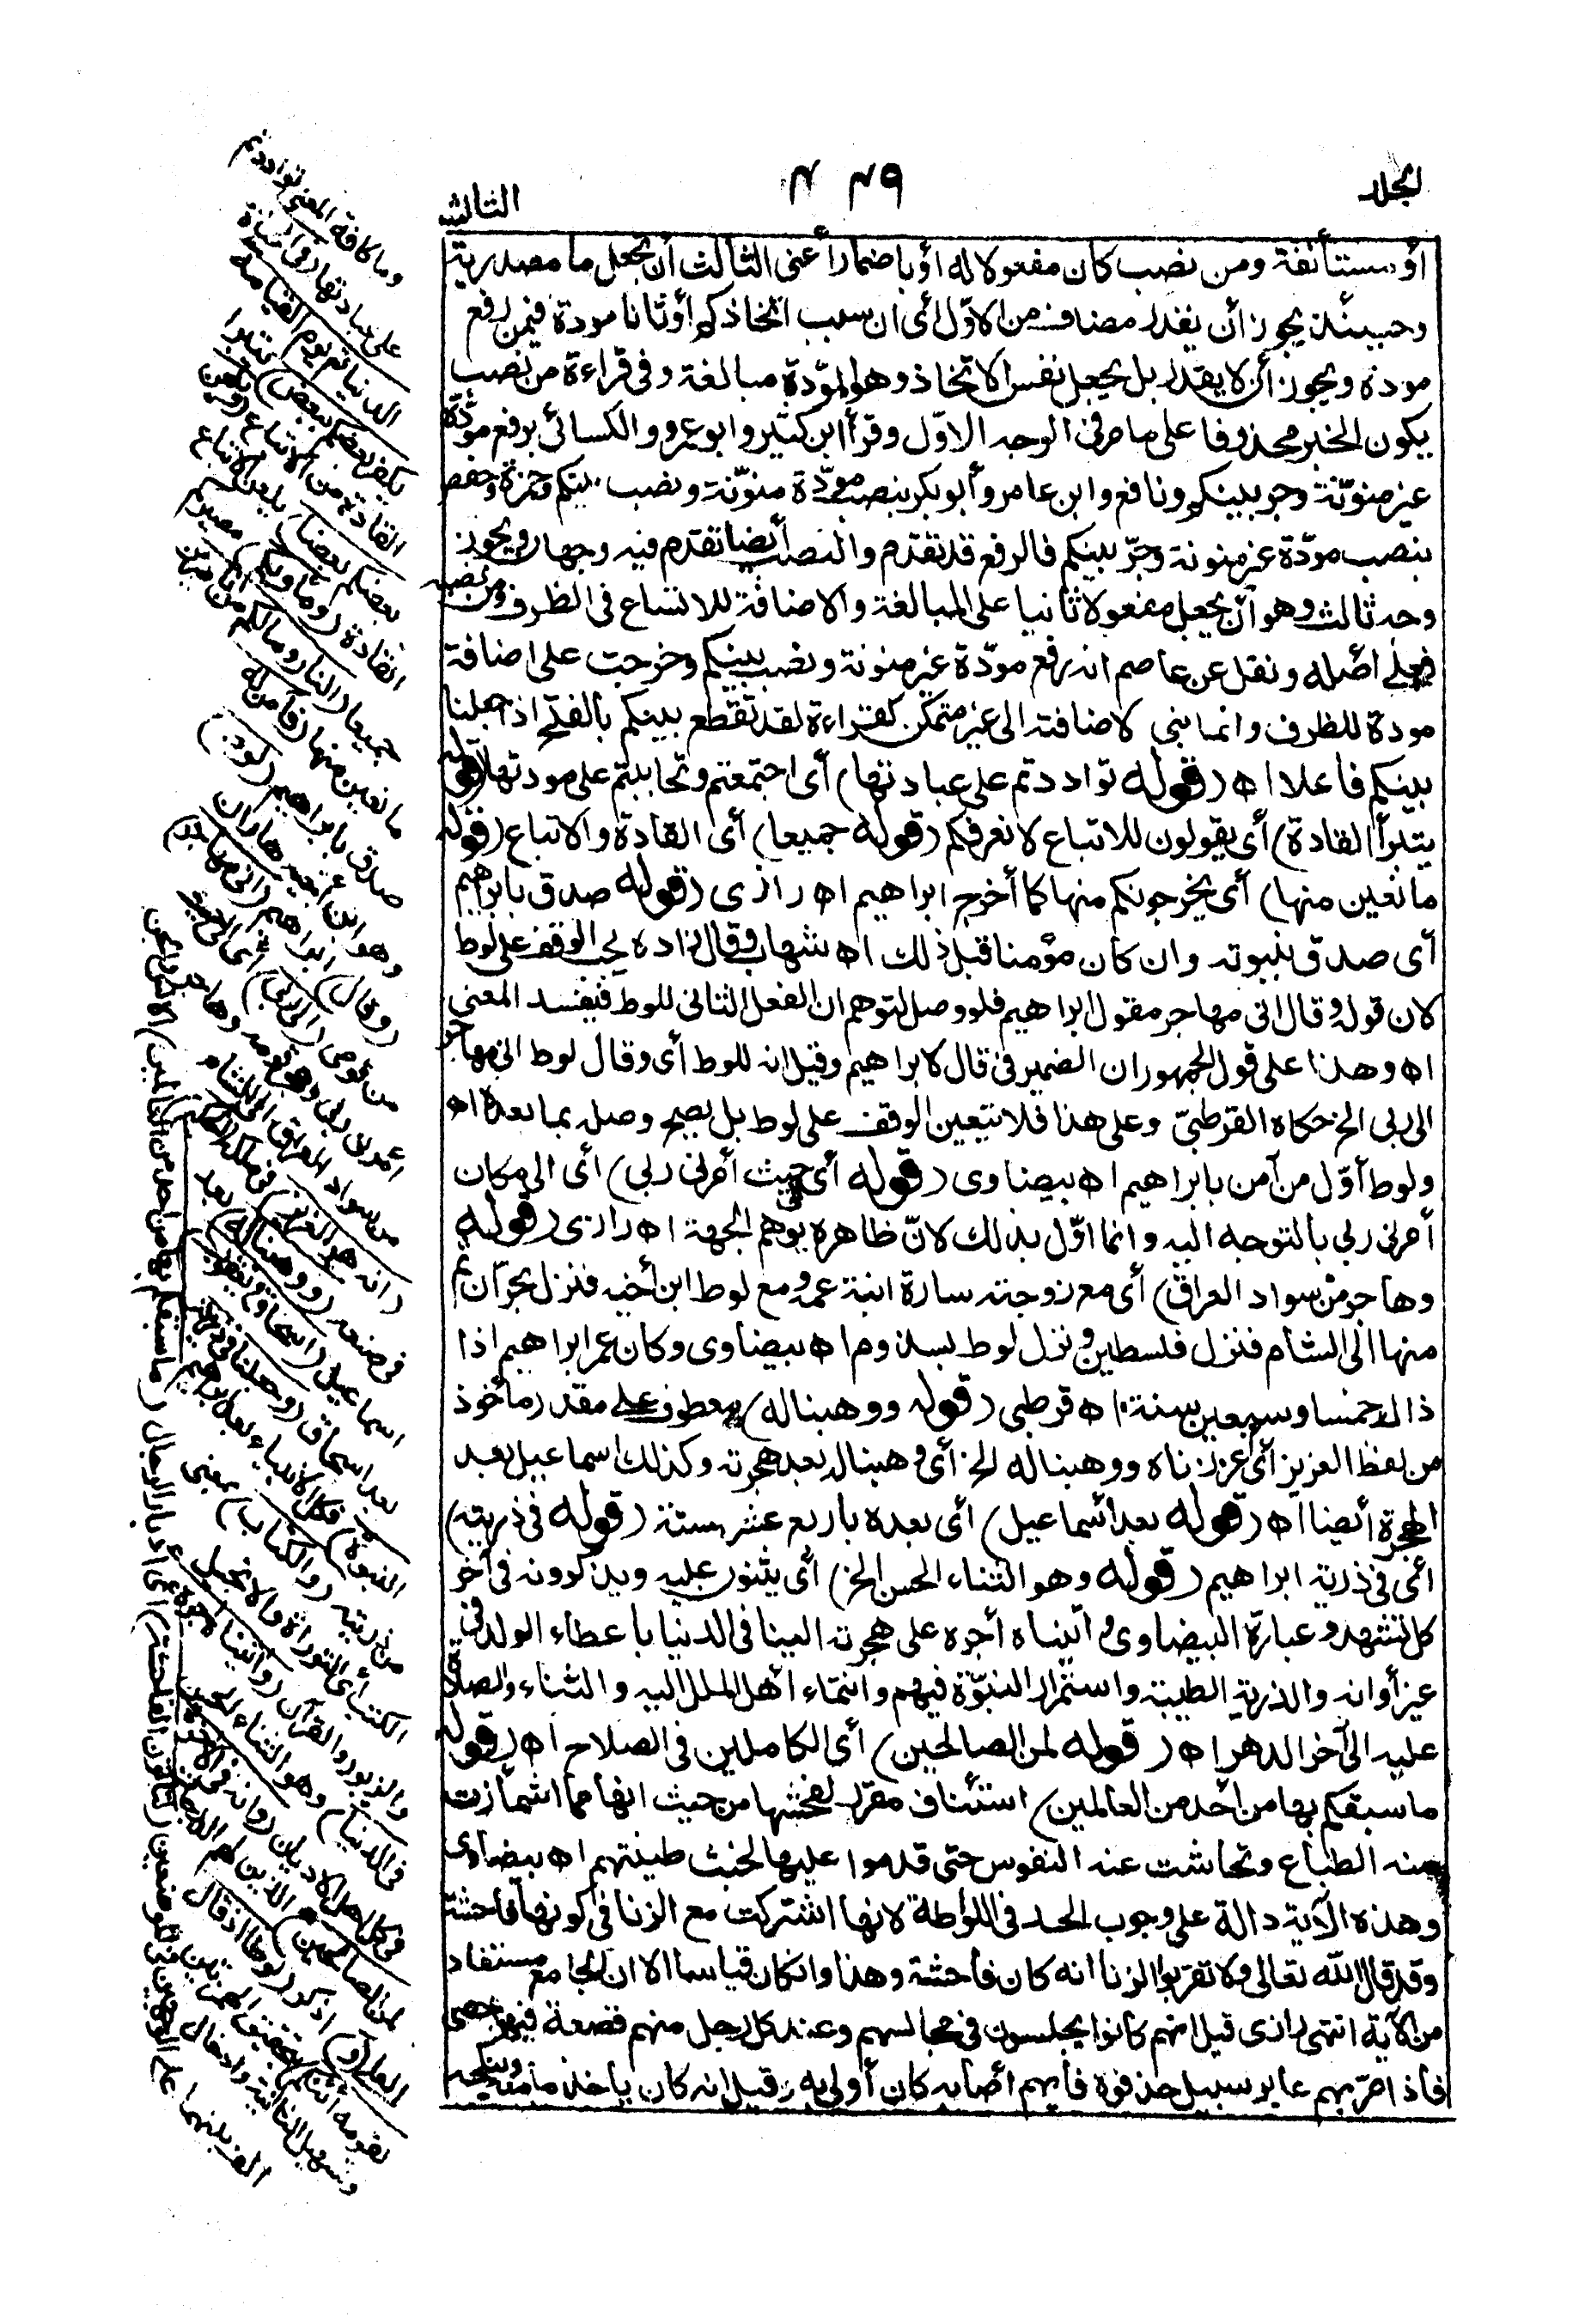 الجلد
٤٣٩
الثالث
أومستأنفة ومن نصب كان مفعولا له أو باضمار أعنى الثالث أن تجعل ما مصدرية
وحينئذ يجوز أن يقدر مضاف من الاوّل أى ان سبب اتخاذكم أوثانا مودة فيمن رفع
مودة ويجوز أن لا يقدر بل يجعل نفس الاتخاذ وهو المودّة مبالغة وفى قراءة من نصب
يكون الخبر محذوفا على ما مر فى الوجه الاوّل وقرأ ابن كثير وابو عمرو والكسائى برفع مودّة
غير منوّنة وجر بينكم ونافع وابن عامر وأبو بكر بنصب مودّة منوّنة ونصب بينكم وحمزة وحفص
بنصب مودّة غير منونة وجرّ بينكم فالرفع قد تقدم والنصب أيضا تقدم فيه وجهان ويجوز
وجه ثالث وهو أن يجعل مفعولا ثانيا على المبالغة والاضافة للاتساع فى الظرف ومن نصبه
فعلى أصله ونقل عن عاصم انه رفع مودّة غير منونة ونصب بينكم وخرجت على اضافة
مودة للظرف وانما بنى لاضافته الى غير متمكن كقراءة لقد تقطع بينكم بالفتح اذا جعلنا
بينكم فاعلا اه (قوله تواددتم على عبادتها) أى اجتمعتم وتحاببتم على مودتها (قوله
يتبرأ القادة) أى يقولون للاتباع لا نعرفكم (قوله جميعا) أى القادة والاتباع (قوله
مانعين منها) أى يخرجونكم منها كما أخرج ابراهيم اه رازى (قوله صدق بابراهيم
أى صدق بنبوته وان كان مؤمنا قبل ذلك اه شهاب وقال زاده يجب الوقف على لوط
لان قوله وقال انى مهاجر مقول ابراهيم فلو وصل لتوهم ان الفعل الثانى للوط فيفسد المعنى
اه وهذا على قول الجمهور ان الضمير فى قال لابراهيم وقيل انه للوط أى وقال لوط انى مهاجر
الى ربى الخ حكاه القرطبىّ وعلى هذا فلا يتعين الوقف على لوط بل يصح وصله بما بعده اه
ولوط أوّل من آمن بابراهيم اه بيضاوى (قوله أى حيث أمرنى ربى) أى الى مكان
أمرنى ربى بالتوجه اليه وانما اوّل بذلك لانّ ظاهره يوهم الجهة اه رازى (قوله
وهاجر من سواد العراق) أى مع زوجته سارة ابنة عمه ومع لوط ابن أخيه فنزل بحران ثم
منها الى الشام فنزل فلسطين ونزل لوط بسذوم اه بيضاوى وكان عمر ابراهيم اذا
ذاك خمسا وسبعين سنة اه قرطبى (قوله ووهبنا له) معطوف على مقدر مأخوذ
من لفظ العزيز أى عززناه ووهبنا له الخ أى وهبنا له بعد هجرته وكذلك اسماعيل بعد
الهجرة أيضا اه (قوله بعد اسماعيل) أى بعده باربع عشرة سنة (قوله فى ذريته)
أى فى ذرية ابراهيم (قوله وهو الثناء الحسن الخ) أى يثنون عليه ويذكرونه فى آخر
كل تشهد وعبارة البيضاوى وآتيناه أجره على هجرته الينا فى الدنيا باعطاء الولد فى
غير أوانه والذرية الطيبة واستمرار النبوّة فيهم وانتماء أهل الملل اليه والثناء والصلاة
عليه الى آخر الدهر اه (قوله لمن الصالحين) أى الكاملين فى الصلاح اه (قوله
ما سبقكم بها من أحد من العالمين) استئناف مقرر لفحشها من حيث انها مما اشمأزت
منه الطباع وتحاشت عنه النفوس حتى قدموا عليها لخبث طينتهم اه بيضاوى
وهذه الآية دالة على وجوب الحد فى اللواطة لانها اشتركت مع الزنا فى كونها فاحشة
وقد قال الله تعالى ولا تقربوا الزنا انه كان فاحشة وهذا وان كان قياسا الا ان الجامع مستفاد
من الآية انتهى رازى قيل انهم كانوا يجلسون فى مجالسهم وعند كل رجل منهم قصعة فيها حصى
فاذا مرّ بهم عابر سبيل حذفوه فأيهم أصابه كان أولى به وقيل انه كان يأخذ ما معه وينكحه
وما كافة المعنى تواددتم
على عبادتها
الدنيا ثم يوم القيامة
يكفر بعضكم ببعض) يتبرأ
القادة من الاتباع (ويلعن
بعضكم بعضا) يلعن الاتباع
القادة (ومأواكم) مصيركم
جميعا (النار وما لكم من ناصرين)
مانعين منها (فآمن له)
صدق بابراهيم (لوط)
وهو ابن أخيه هاران
(وقال) ابراهيم (انى مهاجر)
من قومى (الى ربى) أى الى حيث
أمرنى ربى وهجر قومه وهاجر
من سواد العراق الى الشام
(انه هو العزيز) فى ملكه (الحكيم)
فى صنعه (ووهبنا له) بعد
اسماعيل (اسحاق ويعقوب)
بعد اسحاق (وجعلنا فى ذريته
النبوّة) فكل الانبياء بعد ابراهيم
من ذريته (والكتاب) بمعنى
الكتب أى التوراة والانجيل
والزبور والقرآن (وآتيناه أجره
فى الدنيا) وهو الثناء الحسن
فى كل أهل الاديان (وانه فى الآخرة
لمن الصالحين) الذين لهم الدرجات
العلى (و) اذكر (لوطا اذ قال
لقومه أئنكم) بتحقيق الهمزتين
وتسهيل الثانية وادخال
ألف بينهما على الوجهين فى الموضعين (لتأتون الفاحشة) أى أدبار الرجال (ما سبقكم بها من أحد من العالمين) الانس والجن